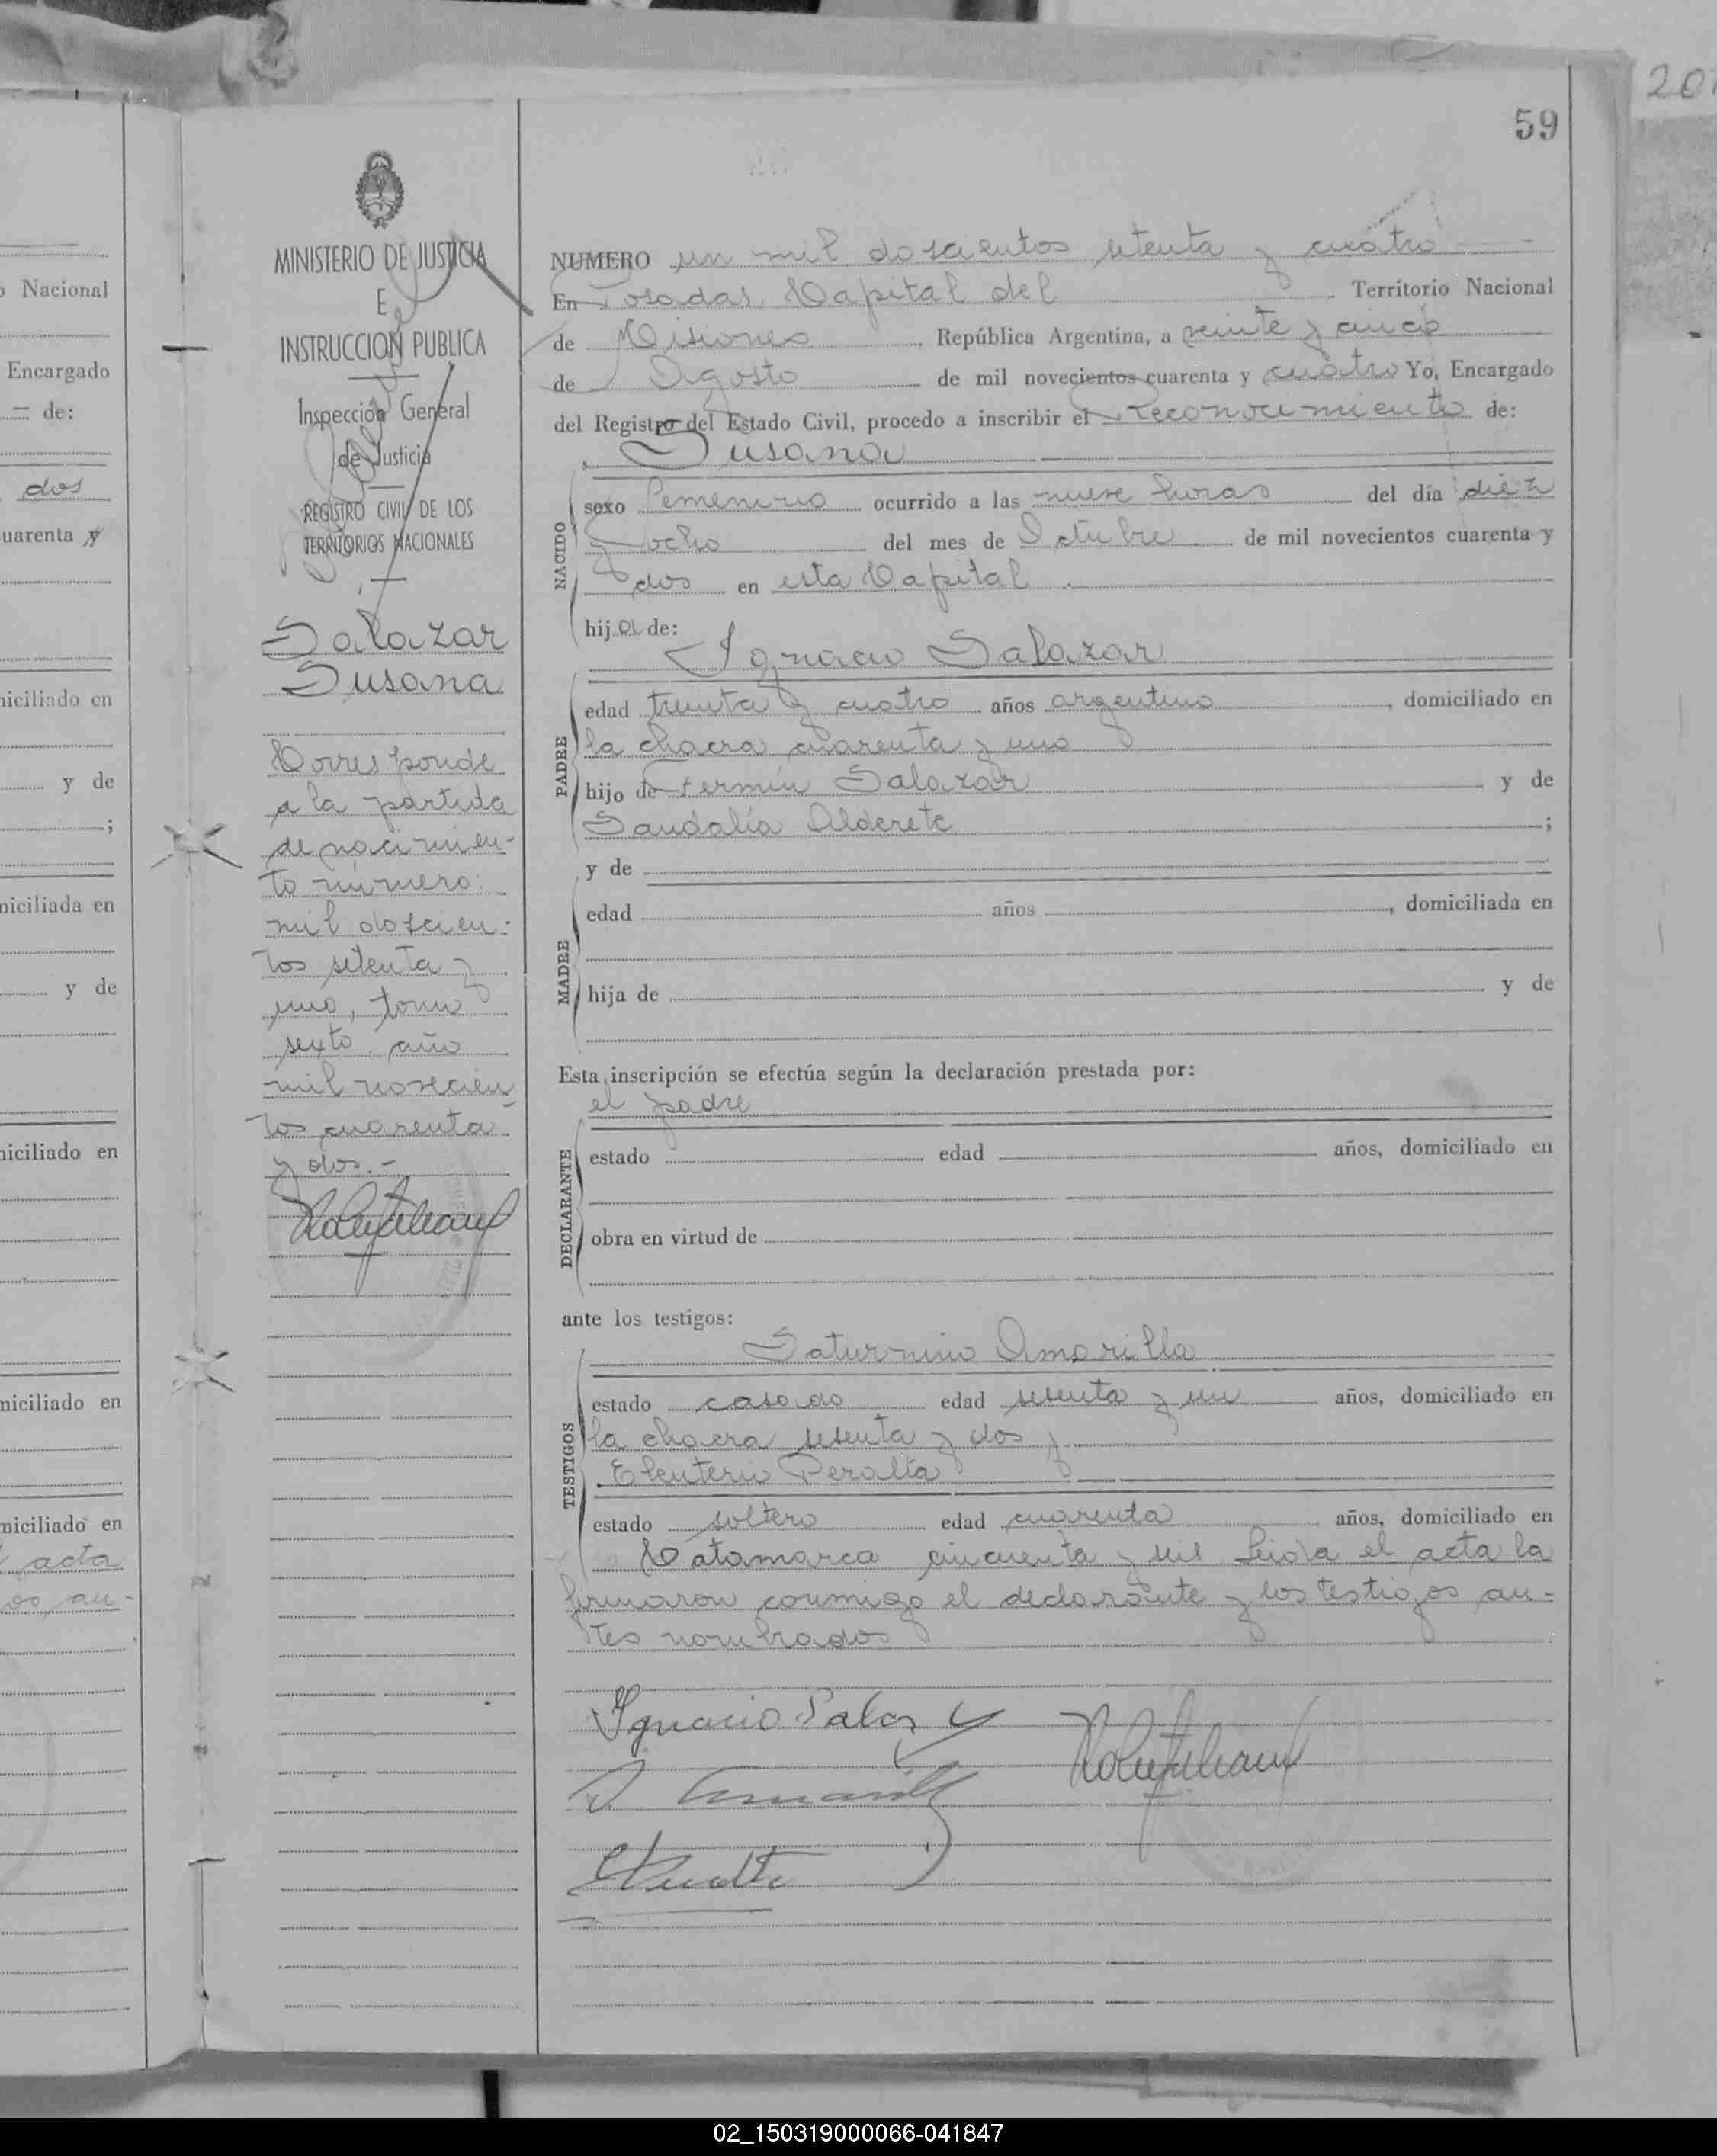 59
201
MINISTERIO DE JUSTICIA
E
INSTRUCCION PUBLICA
Inspección General
de Justicia
REGISTRO CIVIL DE LOS
TERRITORIOS NACIONALES
Salazar
Susana
Corresponde
a la partida
de nacimien-
to número
mil doscien-
tos setenta y
uno, tomo
sexto, año
mil novecien
tos cuarenta
y dos.-
NUMERO un mil doscientos setenta y cuatro
En Posadas Capital del Territorio Nacional
de Misiones, República Argentina, a veinte y cinco
de Agosto de mil novecientos cuarenta y cuatro Yo, Encargado
del Registro del Estado Civil, procedo a inscribir el reconocimiento de:
Susana
NACIDO
sexo femenino ocurrido a las nueve horas del día diez
y ocho del mes de Octubre de mil novecientos cuarenta y
dos en esta Capital
hija de:
Ignacio Salazar
PADRE
edad treinta y cuatro años argentino, domiciliado en
la chacra cuarenta y uno
hijo de Fermín Salazar y de
Sandalia Alderete ;
y de
MADRE
edad años , domiciliada en
hija de y de
Esta inscripción se efectúa según la declaración prestada por:
el padre
DECLARANTE
estado edad años, domiciliado en
obra en virtud de
ante los testigos:
Saturnino Amarilla
TESTIGOS
estado casado edad sesenta y un años, domiciliado en
la chacra sesenta y dos y
Eleuterio Peralta
estado soltero edad cuarenta años, domiciliado en
Catamarca cincuenta y seis Leida el acta la
firmaron conmigo el declarante y los testigos an-
tes nombrados
Ignacio Salaz
o Nacional
Encargado
de:
dos
uarenta y
niciliado en
y de
;
niciliada en
y de
niciliado en
niciliado en
niciliado en
acta
os an-
02_150319000066-041847